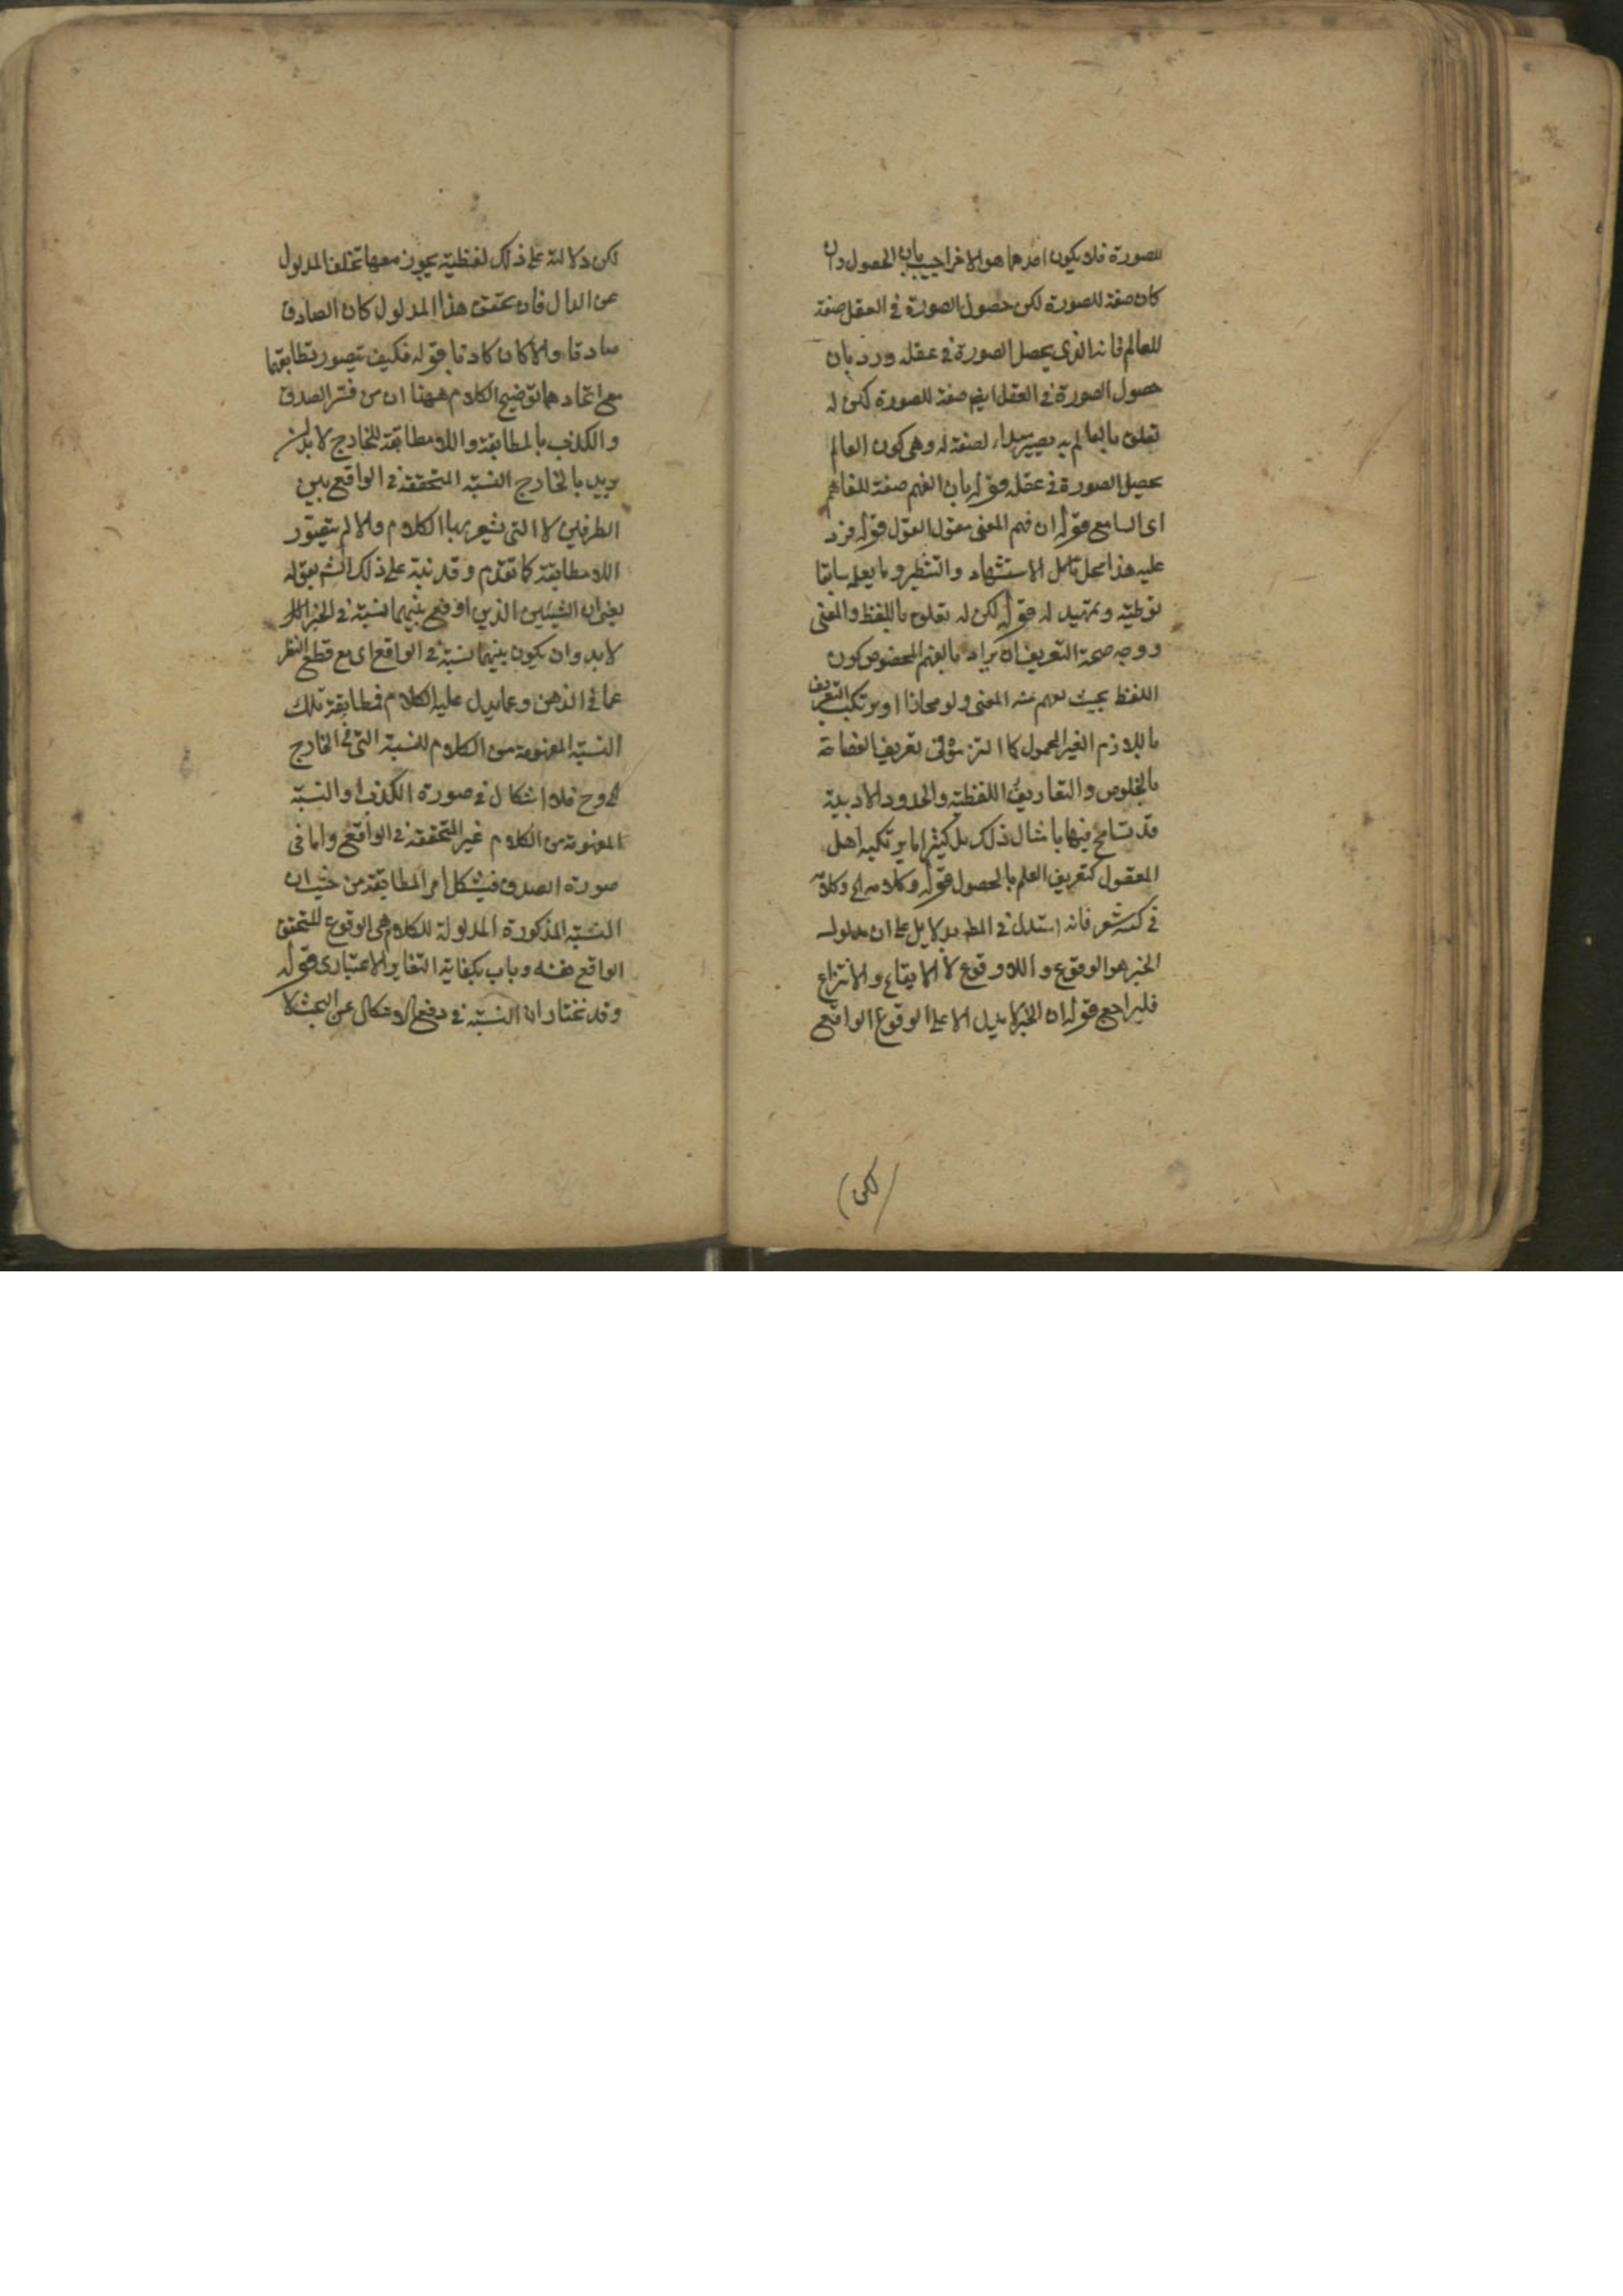 للصورة فلا يكون احدهما هو الاخر اجيب بان الحصول وان
كان صفة للصورة لكن حصول الصورة في العقل صفة
للعالم فانه الذي يحصل الصورة في عقله ورد بان
حصول الصورة في العقل ايضا صفة للصورة لكن له
تعلق بالعالم به يصير مبداء لصفة له وهي كون العالم
يحصل الصورة في عقله قوله بان الفهم صفة للفاهم
اي السامع قوله ان فهم المعنى مقول القول قوله فرد
عليه هذا محل تامل الاستشهاد والتنظير وما يعلمه سابقا
توطية وتمهيد له قوله لكن له تعلق باللفظ والمعنى
ووجه صحة التعريف ان يراد بالفهم المخصوص كون
اللفظ بحيث يفهم منه المعنى ولو مجازا او يرتكب التعريف
باللازم الغير المحمول كما التزموه في تعريف الفصاحة
بالخلوص والتعاريف اللفظية والحدود الادبية
قد تسامح فيها بامثال ذلك بل كثيرا ما يرتكبه اهل
المعقول كتعريف العلم بالحصول قوله وكلامه الخ وكلامه
في كتبه شعر فانه استدل في المط بدلايل على ان مدلول
الخبر هو الوقوع واللاوقوع لا الايقاع والانتزاع
فليراجع قوله ان الخبر لا يدل الا على الوقوع الواقع
لكن
لكن دلالته على ذلك لفظية يجوز معها تخلف المدلول
عن الدال فان تحقق هذا المدلول كان الصادق
صادقا والا كان كاذبا قوله فكيف يتصور تطابقهما
مع اتحادهما توضيح الكلام ههنا ان من فسر الصدق
والكذب بالمطابقة واللامطابقة للخارج لا بد ان
يريد بالخارج النسبة المتحققة في الواقع بين
الطرفين لا التي يشعر بها الكلام والا لم يتصور
اللامطابقة كما تقدم وقد نبه على ذلك الشم بقوله
يعني ان الشيئين الذين اوقع بينهما نسبة في الخبر
لا بد وان يكون بينهما نسبة في الواقع اي مع قطع النظر
عما في الذهن وعما يدل عليه الكلام فمطابقة تلك
النسبة المفهومة من الكلام للنسبة التي في الخارج
الخ وح فلا اشكال في صورة الكذب او النسبة
المفهومة من الكلام غير المتحققة في الواقع واما في
صورة الصدق فيشكل امر المطابقة من حيث ان
النسبة المذكورة المدلولة للكلام هي الوقوع المتحقق
الواقع نفسه وباب بكفاية التغاير الاعتباري قوله
وقد نختار ان النسبة في دفع الاشكال عن البحث لا